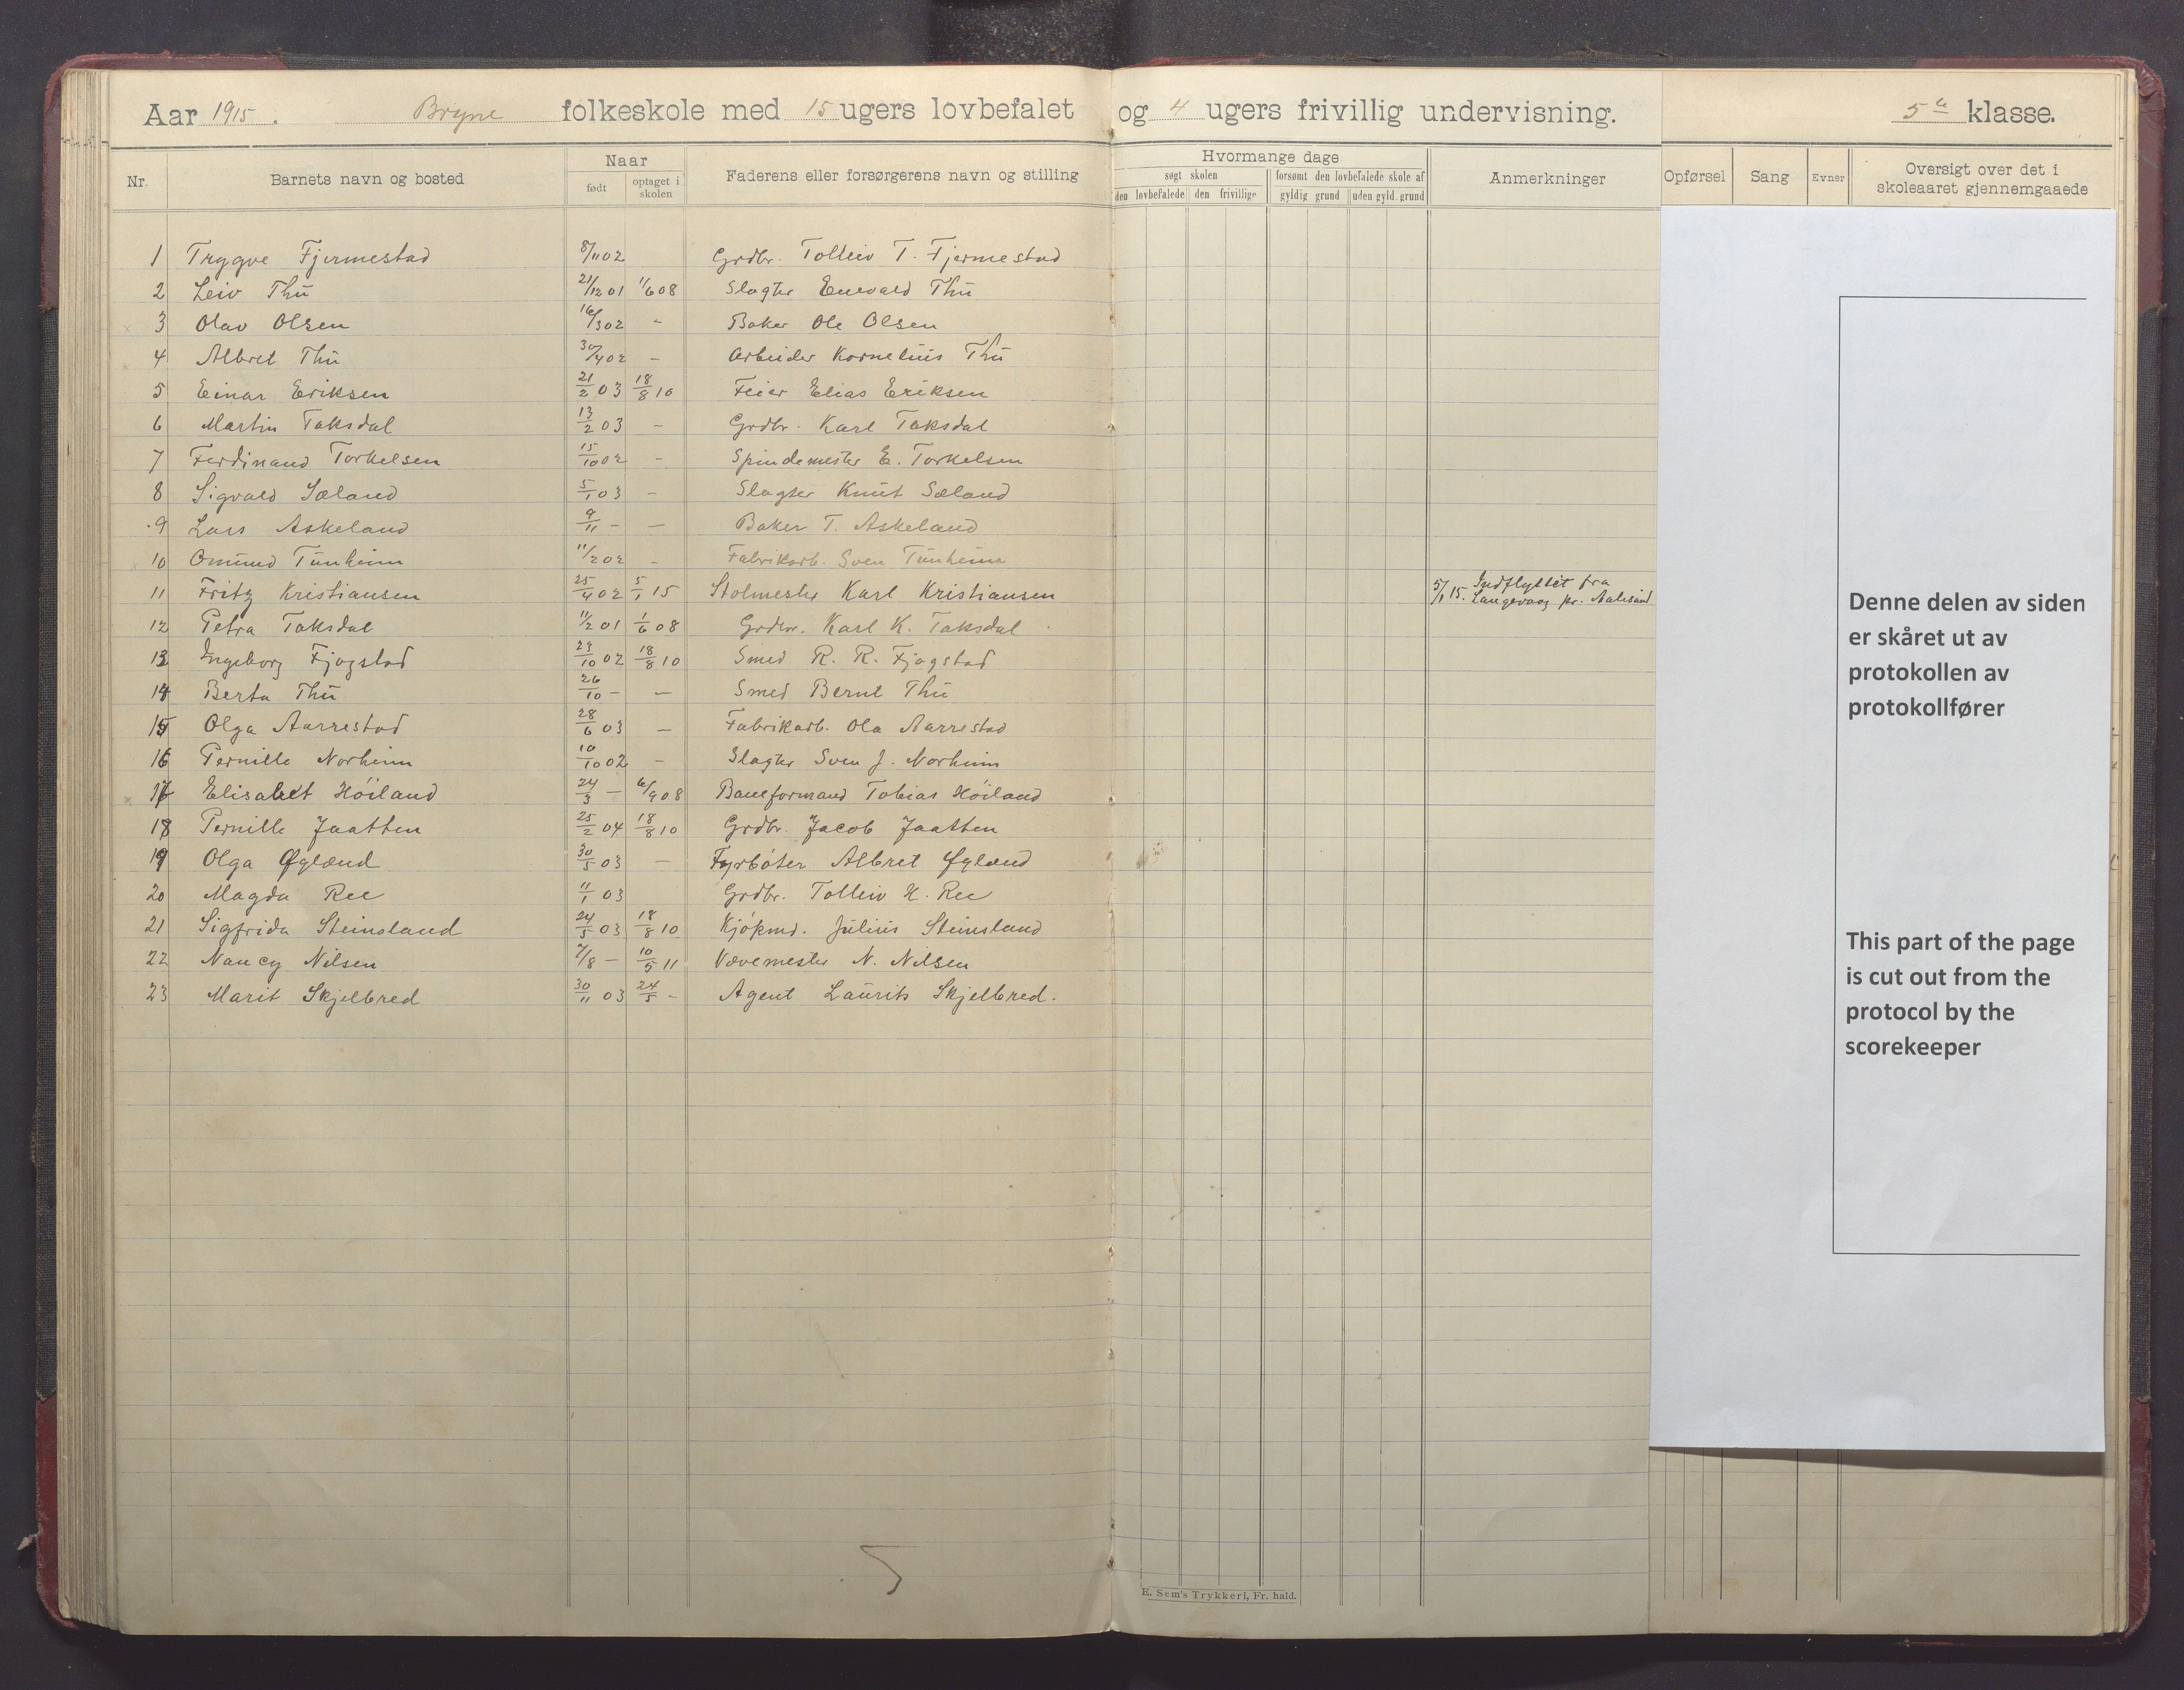 Aar 1915. Bryne folkeskole med 15 ugers lovbefalet og 4 ugers frivillig undervisning. 5te klasse.
Nr. Barnets navn og bosted Naar Faderens eller forsørgerens navn og stilling Hvormange dage Anmerkninger Opførsel Sang Evner Oversigt over det i skoleaaret gjennemgaaede
født optaget i skolen søgt skolen forsømt den lovbefalede skole af
den lovbefalede den frivillige gyldig grund uden gyld. grund
1 Trygve Fjermestad 8/11 02 Grdbr. Tolleiv T. Fjermestad
2 Leiv Thu 21/12 01 1/6 08 Slagter Enevald Thu
3 Olav Olsen 16/3 02 - Baker Ole Olsen
4 Albret Thu 30/4 02 - Arbeider Kornelius Thu
5 Einar Eriksen 21/2 03 18/8 10 Feier Elias Eriksen
6 Martin Taksdal 13/2 03 - Grdbr. Karl Taksdal
7 Ferdinand Torkelsen 15/10 02 - Spindemester E. Torkelsen
8 Sigvald Sæland 5/1 03 - Slagter Knut Sæland
9 Lars Askeland 9/11 - - Baker T. Askeland
10 Omund Tunheim 11/2 02 - Fabrikarb. Sven Tunheim
11 Fritz Kristiansen 25/4 02 5/1 15 Stolmester Karl Kristiansen 5/1 15. Indflyttet fra
Langevaag pr. Aalesund
12 Petra Taksdal 11/2 01 1/6 08 Grdbr. Karl K. Taksdal
13 Ingeborg Fjogstad 23/10 02 18/8 10 Smed R. R. Fjogstad
14 Berta Thu 26/10 - - Smed Bernt Thu
15 Olga Aarrestad 28/6 03 - Fabrikarb. Ola Aarrestad
16 Pernille Norheim 10/10 02 - Slagter Sven J. Norheim
17 Elisabet Höiland 24/3 - 6/9 08 Baneformand Tobias Höiland
18 Pernille Jaatten 25/2 04 18/8 10 Grdbr. Jacob Jaatten
19 Olga Øglænd 30/5 03 - Fyrbøter Albret Øglænd
20 Magda Ree 11/1 03 Grdbr. Tolleiv H. Ree
21 Sigfrida Steinsland 24/5 03 18/8 10 Kjøpmd. Julius Steinsland
22 Nancy Nilsen 7/8 - 10/5 11 Vævemester N. Nilsen
23 Marit Skjelbred 30/11 03 24/5 - Agent Laurits Skjelbred.
5
E. Sem's Trykkeri, Fr. hald.
Denne delen av siden
er skåret ut av
protokollen av
protokollfører
This part of the page
is cut out from the
protocol by the
scorekeeper